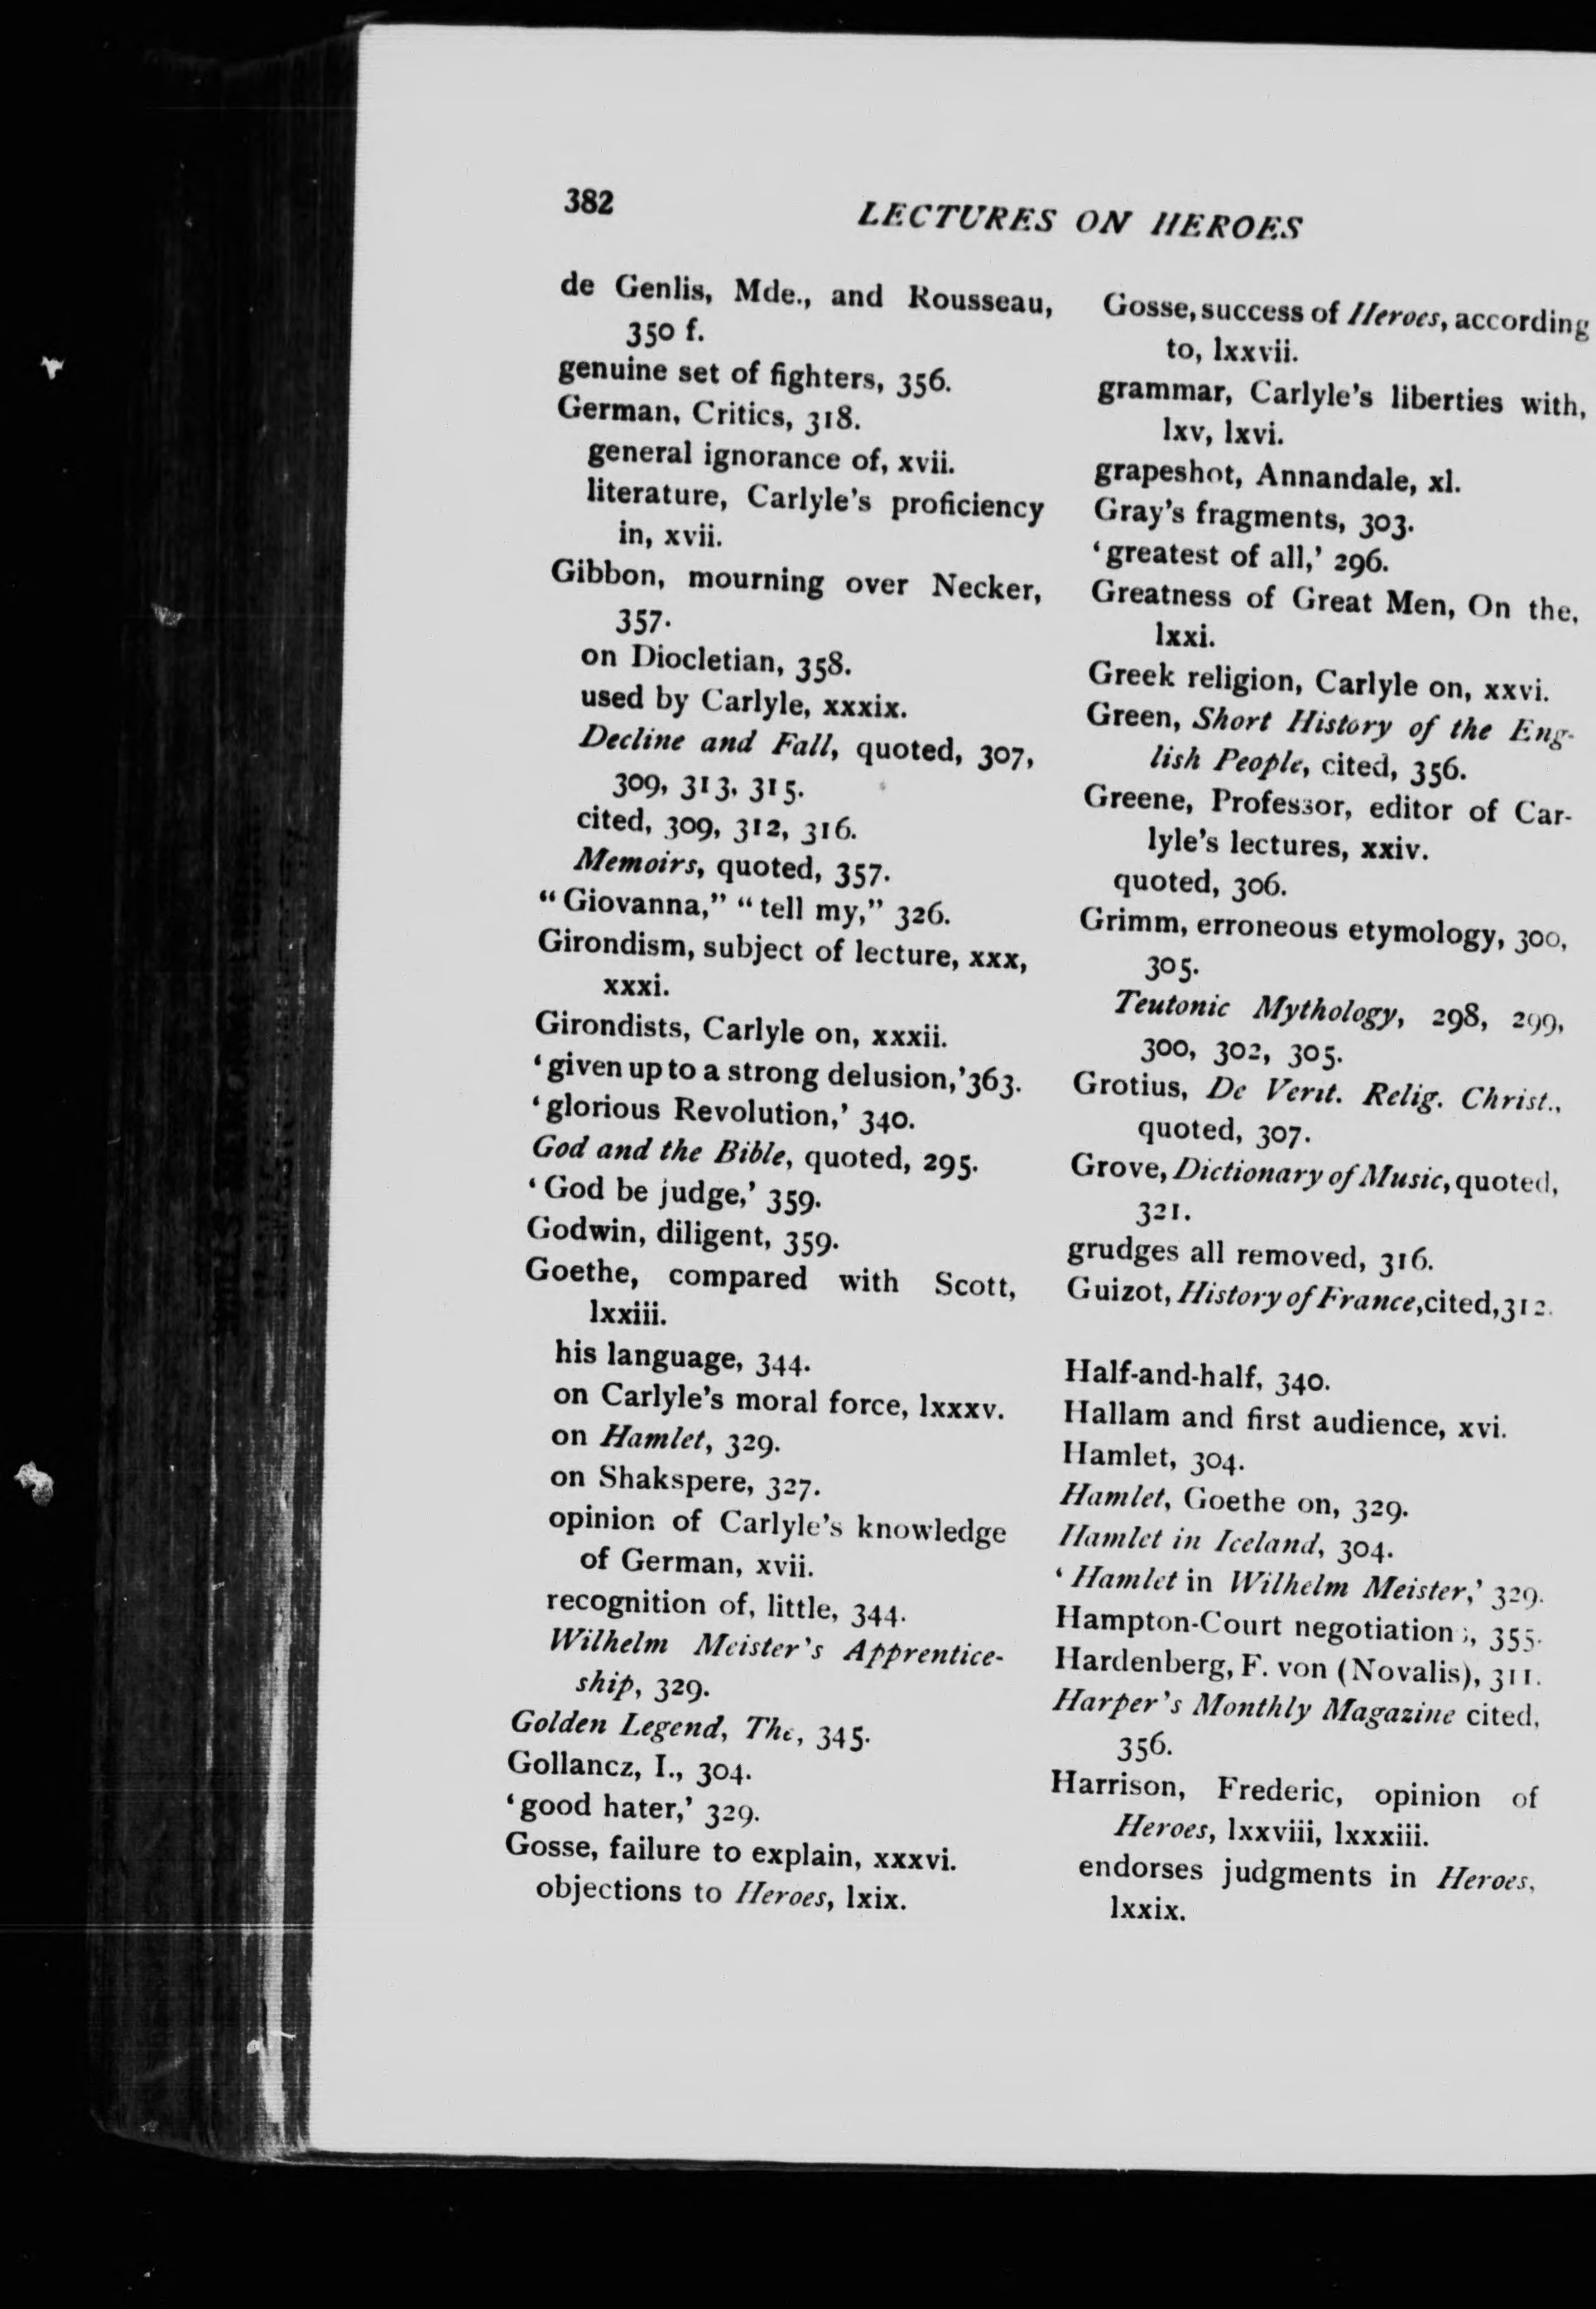 382
LECTURES ON HEROES
de Genlis, Mde., and Rousseau,
350 f.
genuine set of fighters, 356.
German, Critics, 318.
general ignorance of, xvii.
literature, Carlyle's proficiency
in, xvii.
Gibbon, mourning over Necker,
357.
on Diocletian, 358.
used by Carlyle, xxxix.
Decline and Fall, quoted, 307,
309, 313, 315.
cited, 309, 312, 316.
Memoirs, quoted, 357.
“Giovanna,” “tell my,” 326.
Girondism, subject of lecture, xxx,
xxxi.
Girondists, Carlyle on, xxxii.
‘given up to a strong delusion,’ 363.
‘glorious Revolution,’ 340.
God and the Bible, quoted, 295.
‘God be judge,’ 359.
Godwin, diligent, 359.
Goethe, compared with Scott,
lxxiii.
his language, 344.
on Carlyle's moral force, lxxxv.
on Hamlet, 329.
on Shakspere, 327.
opinion of Carlyle's knowledge
of German, xvii.
recognition of, little, 344.
Wilhelm Meister's Apprentice-
ship, 329.
Golden Legend, The, 345.
Gollancz, I., 304.
‘good hater,’ 329.
Gosse, failure to explain, xxxvi.
objections to Heroes, lxix.
Gosse, success of Heroes, according
to, lxxvii.
grammar, Carlyle's liberties with,
lxv, lxvi.
grapeshot, Annandale, xl.
Gray's fragments, 303.
‘greatest of all,’ 296.
Greatness of Great Men, On the,
lxxi.
Greek religion, Carlyle on, xxvi.
Green, Short History of the Eng-
lish People, cited, 356.
Greene, Professor, editor of Car-
lyle's lectures, xxiv.
quoted, 306.
Grimm, erroneous etymology, 300,
305.
Teutonic Mythology, 298, 299,
300, 302, 305.
Grotius, De Verit. Relig. Christ.,
quoted, 307.
Grove, Dictionary of Music, quoted,
321.
grudges all removed, 316.
Guizot, History of France, cited, 312.
Half-and-half, 340.
Hallam and first audience, xvi.
Hamlet, 304.
Hamlet, Goethe on, 329.
Hamlet in Iceland, 304.
‘Hamlet in Wilhelm Meister,’ 329.
Hampton-Court negotiations, 355.
Hardenberg, F. von (Novalis), 311.
Harper's Monthly Magazine cited,
356.
Harrison, Frederic, opinion of
Heroes, lxxviii, lxxxiii.
endorses judgments in Heroes,
lxxix.